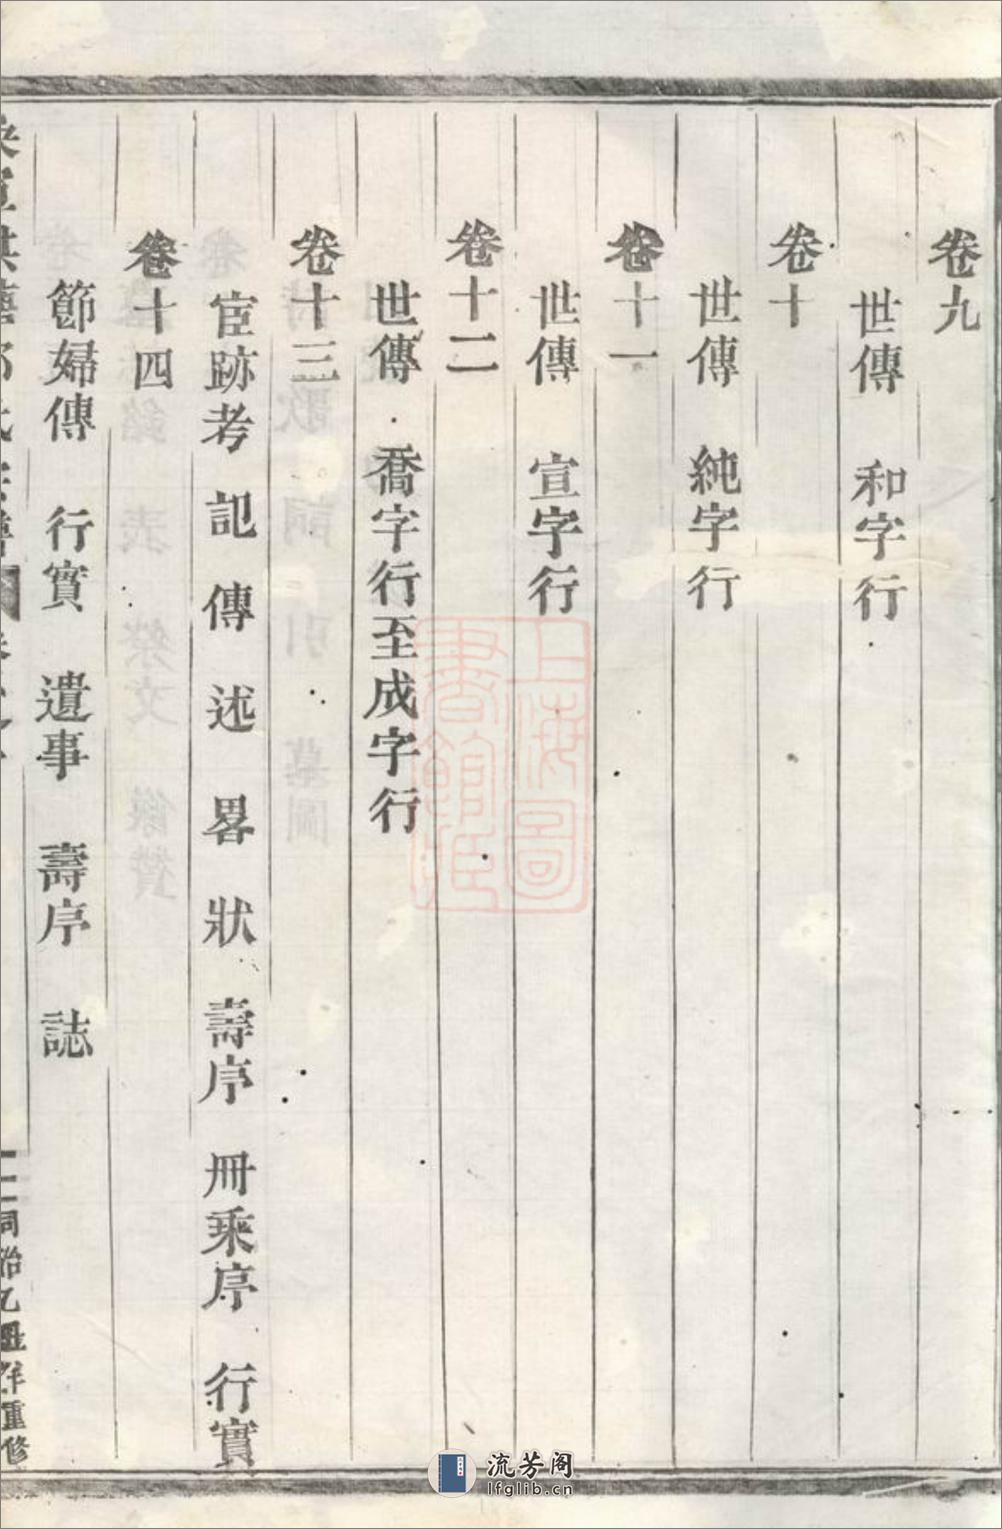 卷九
世傳 和字行
卷十
世傳 純字行
卷十一
世傳 宣字行
卷十二
世傳 喬字行至成字行
卷十三
宦跡考 記 傳 述 畧 狀 壽序 冊乘序 行實
卷十四
節婦傳 行實 遺事 壽序 誌
二 同治乙丑年重修
上海圖書館藏
流芳阁
lfglib.cn